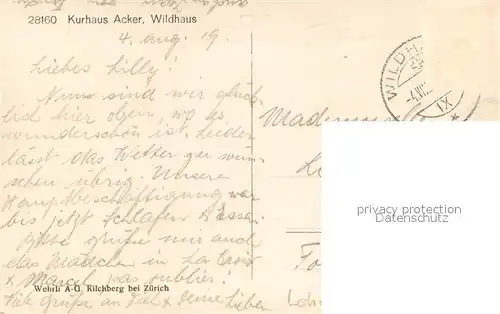 28160 Kurhaus Acker, Wildhaus
4. Aug. 19.
Liebes Lilly!
Nun sind wir glück-
lich hier oben, wo es
wunderschön ist. Leider
lässt das Wetter zu wün-
schen übrig. Unsere
Hauptbeschäftigung war
bis jetzt schlafen &
Bitte grüsse mir auch
das Mädchen in La Croix
& Marcel pas oublier!
Viele Grüsse an & deine Lieben
Wehrli A-G Kilchberg bei Zürich
WILDH
XI
Mademoiselle
privacy protection
powered by Veikkos